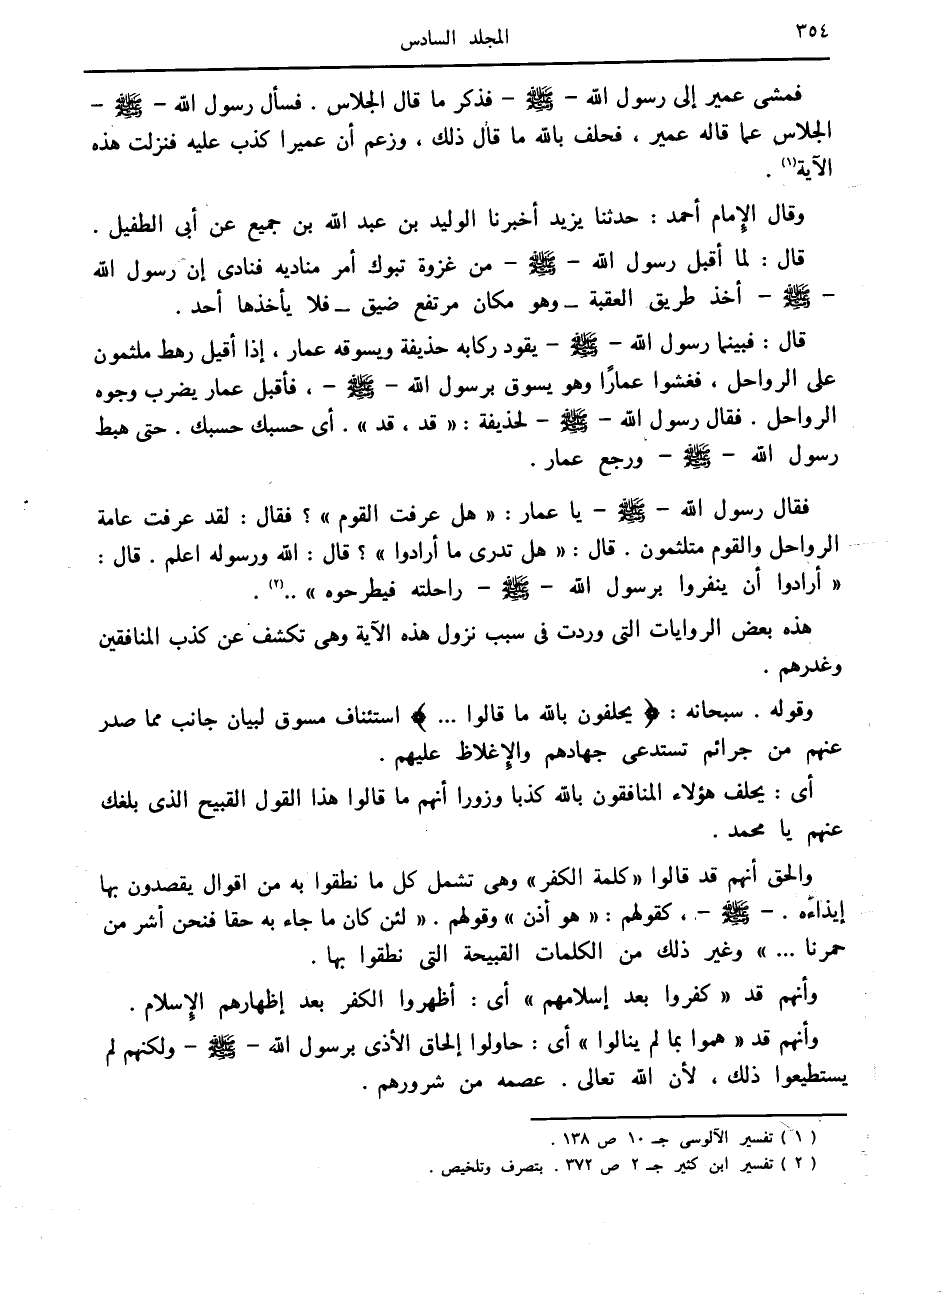 ٣٥٤
المجلد السادس
فمشى عمير إلى رسول الله – ﷺ – فذكر ما قال الجلاس . فسأل رسول الله – ﷺ –
الجلاس عما قاله عمير ، فحلف بالله ما قال ذلك ، وزعم أن عميرا كذب عليه فنزلت هذه
الآية(١) .
وقال الإمام أحمد : حدثنا يزيد أخبرنا الوليد بن عبد الله بن جميع عن أبى الطفيل .
قال : لما أقبل رسول الله – ﷺ – من غزوة تبوك أمر مناديه فنادى إن رسول الله
– ﷺ – أخذ طريق العقبة – وهو مكان مرتفع ضيق – فلا يأخذها أحد .
قال : فبينما رسول الله – ﷺ – يقود ركابه حذيفة ويسوقه عمار ، إذا أقبل رهط ملثمون
على الرواحل ، فغشوا عمارًا وهو يسوق برسول الله – ﷺ – ، فأقبل عمار يضرب وجوه
الرواحل . فقال رسول الله – ﷺ – لحذيفة : « قد ، قد » . أى حسبك حسبك . حتى هبط
رسول الله – ﷺ – ورجع عمار .
فقال رسول الله – ﷺ – يا عمار : « هل عرفت القوم » ؟ فقال : لقد عرفت عامة
الرواحل والقوم متلثمون . قال : « هل تدرى ما أرادوا » ؟ قال : الله ورسوله اعلم . قال :
« أرادوا أن ينفروا برسول الله – ﷺ – راحلته فيطرحوه » ..(٢) .
هذه بعض الروايات التى وردت فى سبب نزول هذه الآية وهى تكشف عن كذب المنافقين
وغدرهم .
وقوله . سبحانه : ﴿ يحلفون بالله ما قالوا ... ﴾ استئناف مسوق لبيان جانب مما صدر
عنهم من جرائم تستدعى جهادهم والإغلاظ عليهم .
أى : يحلف هؤلاء المنافقون بالله كذبا وزورا أنهم ما قالوا هذا القول القبيح الذى بلغك
عنهم يا محمد .
والحق أنهم قد قالوا «كلمة الكفر» وهى تشمل كل ما نطقوا به من اقوال يقصدون بها
إيذاءه . – ﷺ – ، كقولهم : « هو أذن » وقولهم . « لئن كان ما جاء به حقا فنحن أشر من
حمرنا ... » وغير ذلك من الكلمات القبيحة التى نطقوا بها .
وأنهم قد « كفروا بعد إسلامهم » أى : أظهروا الكفر بعد إظهارهم الإسلام .
وأنهم قد « هموا بما لم ينالوا » أى : حاولوا إلحاق الأذى برسول الله – ﷺ – ولكنهم لم
يستطيعوا ذلك ، لأن الله تعالى . عصمه من شرورهم .
( ١ ) تفسير الآلوسى جـ ١٠ ص ١٣٨ .
( ٢ ) تفسير ابن كثير جـ ٢ ص ٣٧٢ . بتصرف وتلخيص .